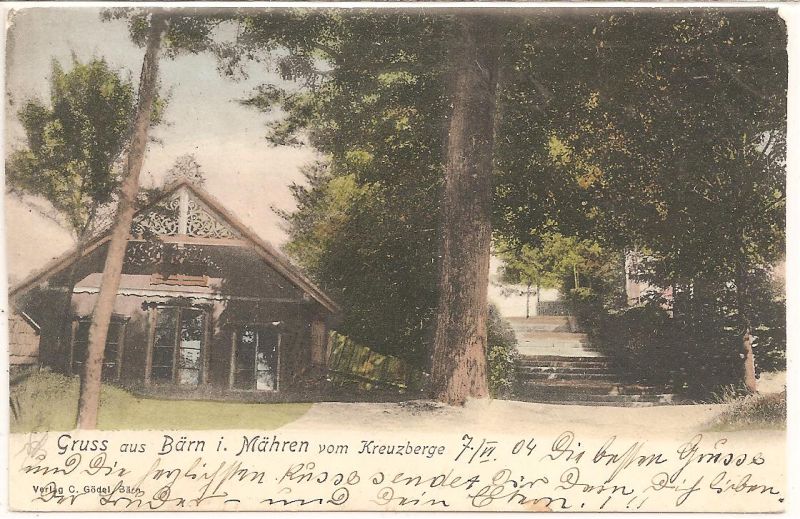 Gruss aus Bärn i. Mähren vom Kreuzberge 7./VI. 04 Die besten Grüsse
und Die herzlichsten Küsse sendet Dir Dein, Dich liebender
Verlag C. Gödel, Bärn.
Bruder – und Dein Eltern.